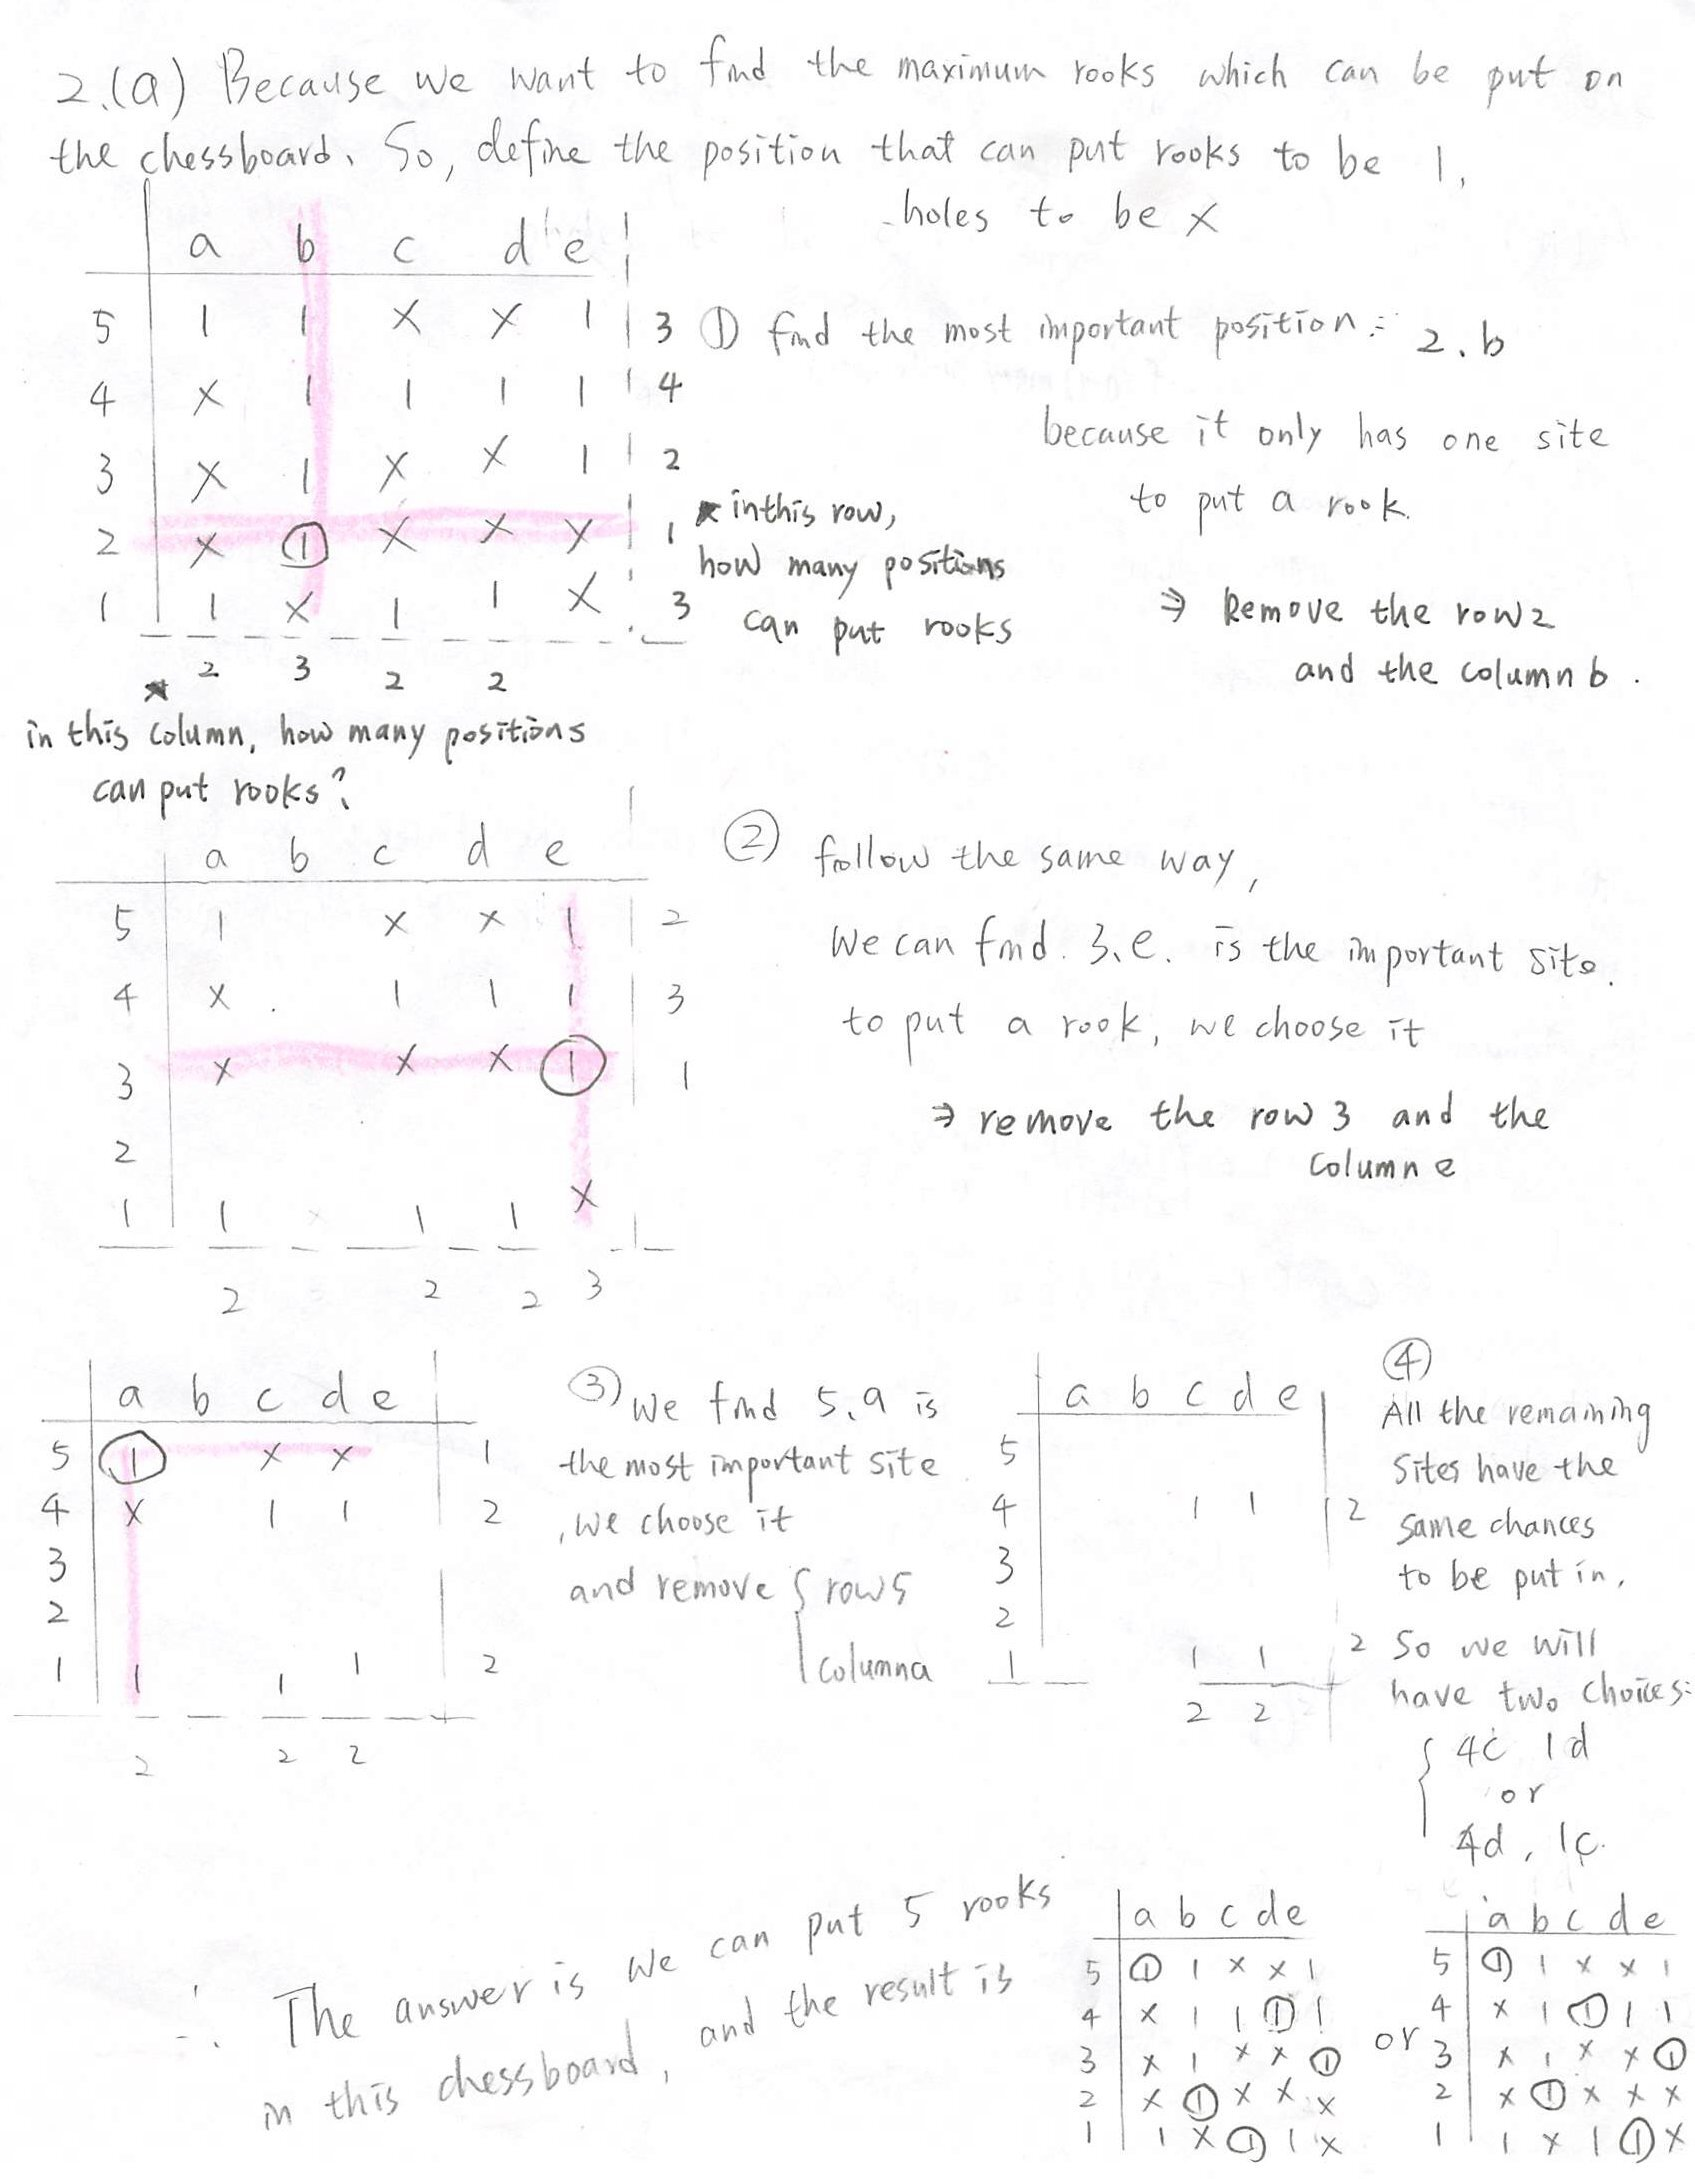 2.(a) Because we want to find the maximum rooks which can be put on
the chessboard. So, define the position that can put rooks to be 1,
holes to be X
a b c d e
5 1 1 X X 1 3
4 X 1 1 1 1 4
3 X 1 X X 1 2
2 X 1 X X X 1
1 1 X 1 1 X 3
2 3 2 2
① find the most important position: 2.b
because it only has one site
to put a rook.
⇒ Remove the row 2
and the column b.
* in this row,
how many positions
can put rooks
*
in this column, how many positions
can put rooks?
a b c d e
5 1 X X 1 2
4 X 1 1 1 3
3 X X X 1 1
2
1 1 X 1 1 X
2 2 2 3
② follow the same way,
we can find 3.e. is the important site.
to put a rook, we choose it
⇒ remove the row 3 and the
column e
a b c d e
5 1 X X 1
4 X 1 1 2
3
2
1 1 1 1 2
2 2 2
③ We find 5.a is
the most important site
, we choose it
and remove { row 5
column a
a b c d e
5
4 1 1 2
3
2
1 1 1 2
2 2
④
All the remaining
sites have the
same chances
to be put in.
So we will
have two choices:
4c 1d
or
4d, 1c.
∴ The answer is we can put 5 rooks
in this chessboard, and the result is
a b c d e
5 ① 1 X X 1
4 X 1 1 ① 1
3 X 1 X X ①
2 X ① X X X
1 1 X ① 1 X
or
a b c d e
5 ① 1 X X 1
4 X 1 ① 1 1
3 X 1 X X ①
2 X ① X X X
1 1 X 1 ① X